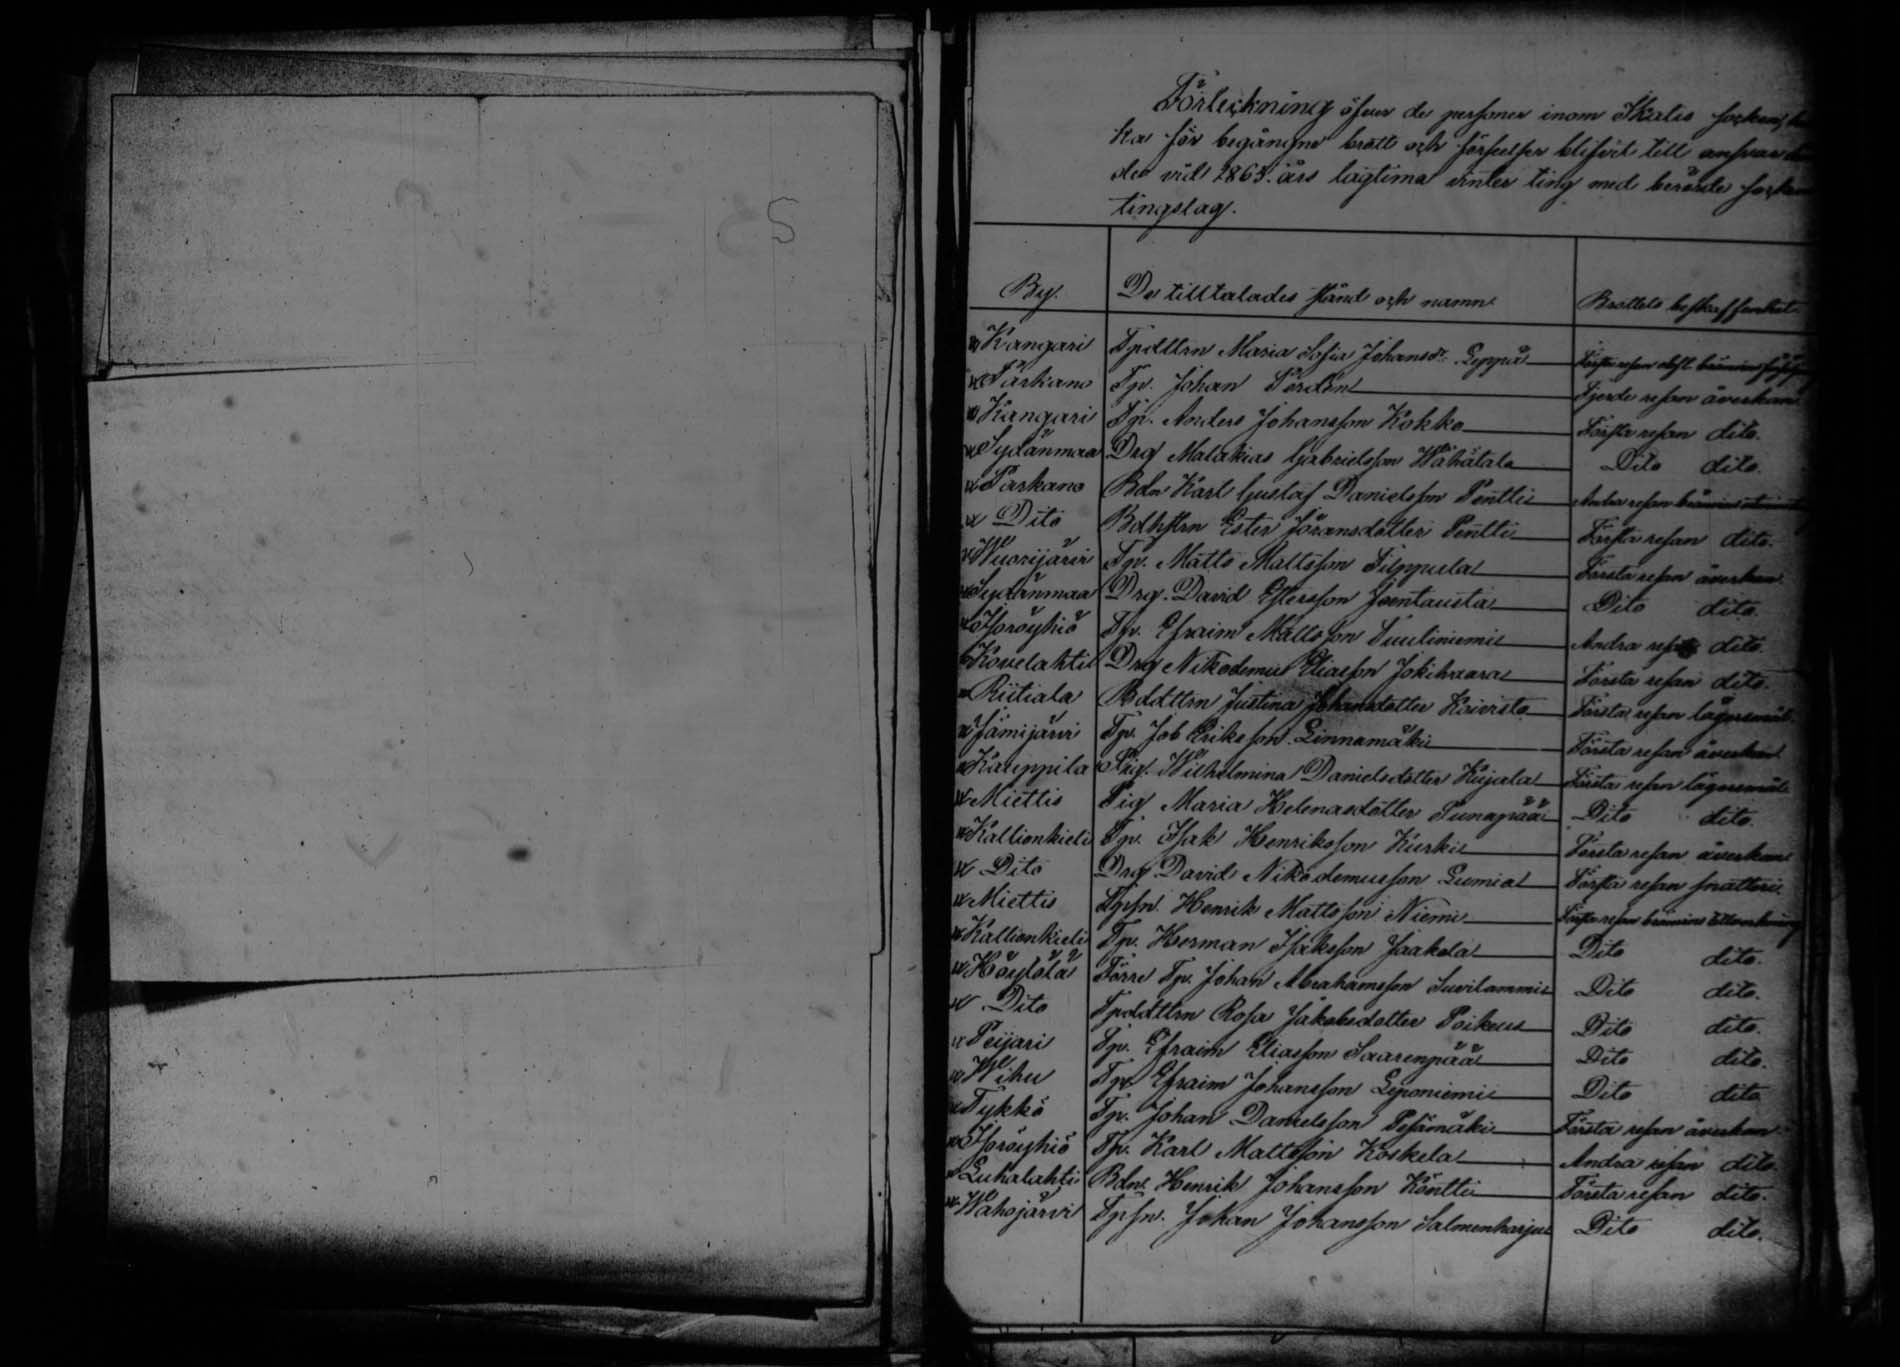 Förteckning öfver de personer inom Ikalis socken,
ka för begångne brott och förseelser blifvit till ansvar
de vid 1865 års lagtima vinter ting med berörde socken
tingslag.
By. De tilltalades stånd och namn Brottets beskaffenhet
Kangari Tpdttrn Maria Sofia Johansdr Leppä Första resan
Parkano Tp. Johan Perdén Fjerde resan åverkan
Kangari Tp. Anders Johansson Kokko Första resan dito.
Sydänmaa Drg Malakias Gabrielsson Wähätalo Dito dito.
Parkano Bdn Karl Gustaf Danielsson Pentti Andra resan
Dito Bdhstrn Ester Jöransdotter Pentti Första resan dito.
Wuorijärvi Tp. Matts Mattsson Filppula Första resan åverkan
Sydänmaa Drg. David Estersson Joentausta Dito dito.
Höröyhiö Tp. Efraim Mattsson Tuuliniemi Andra resan dito.
Kovelahti Drg Nikodemus Eliasson Jokihaara Första resan dito.
Riitiala Bddttrn Justina Johansdotter Koivisto Första resan lägersmål.
Jämijärvi Tp. Job Eriksson Linnamäki Första resan åverkan
Kauppila Pig. Wilhelmina Danielsdotter Kujala Första resan lägersmål
Miettis Pig Maria Helenasdotter Sunapää Dito dito.
Kallionkieli Tp. Isak Henriksson Kurki Första resan åverkan
Dito Drg David Nikodemusson Lumia Första resan snatteri
Miettis Tpsn. Henrik Mattsson Niemi Första resan bränvins tillverkning
Kallionkieli Tp. Herman Isaksson Jaakola Dito dito.
Höytölä Förre Tp. Johan Abrahamsson Suvilammi Dito dito.
Dito Tpddttrn Rosa Jakobsdotter Poikeus Dito dito.
Peijari Tp. Efraim Eliasson Saarenpää Dito dito.
Wihu Tp. Efraim Johansson Leponiemi Dito dito
Tykkö Tp. Johan Danielsson Pesämäki Första resan åverkan
Höröyhiö Tp. Karl Mattsson Koskela Andra resan dito.
Luhalahti Bdn Henrik Johansson Köntti Första resan dito.
Wahojärvi Tpsn. Johan Johansson Salmenharju Dito dito.